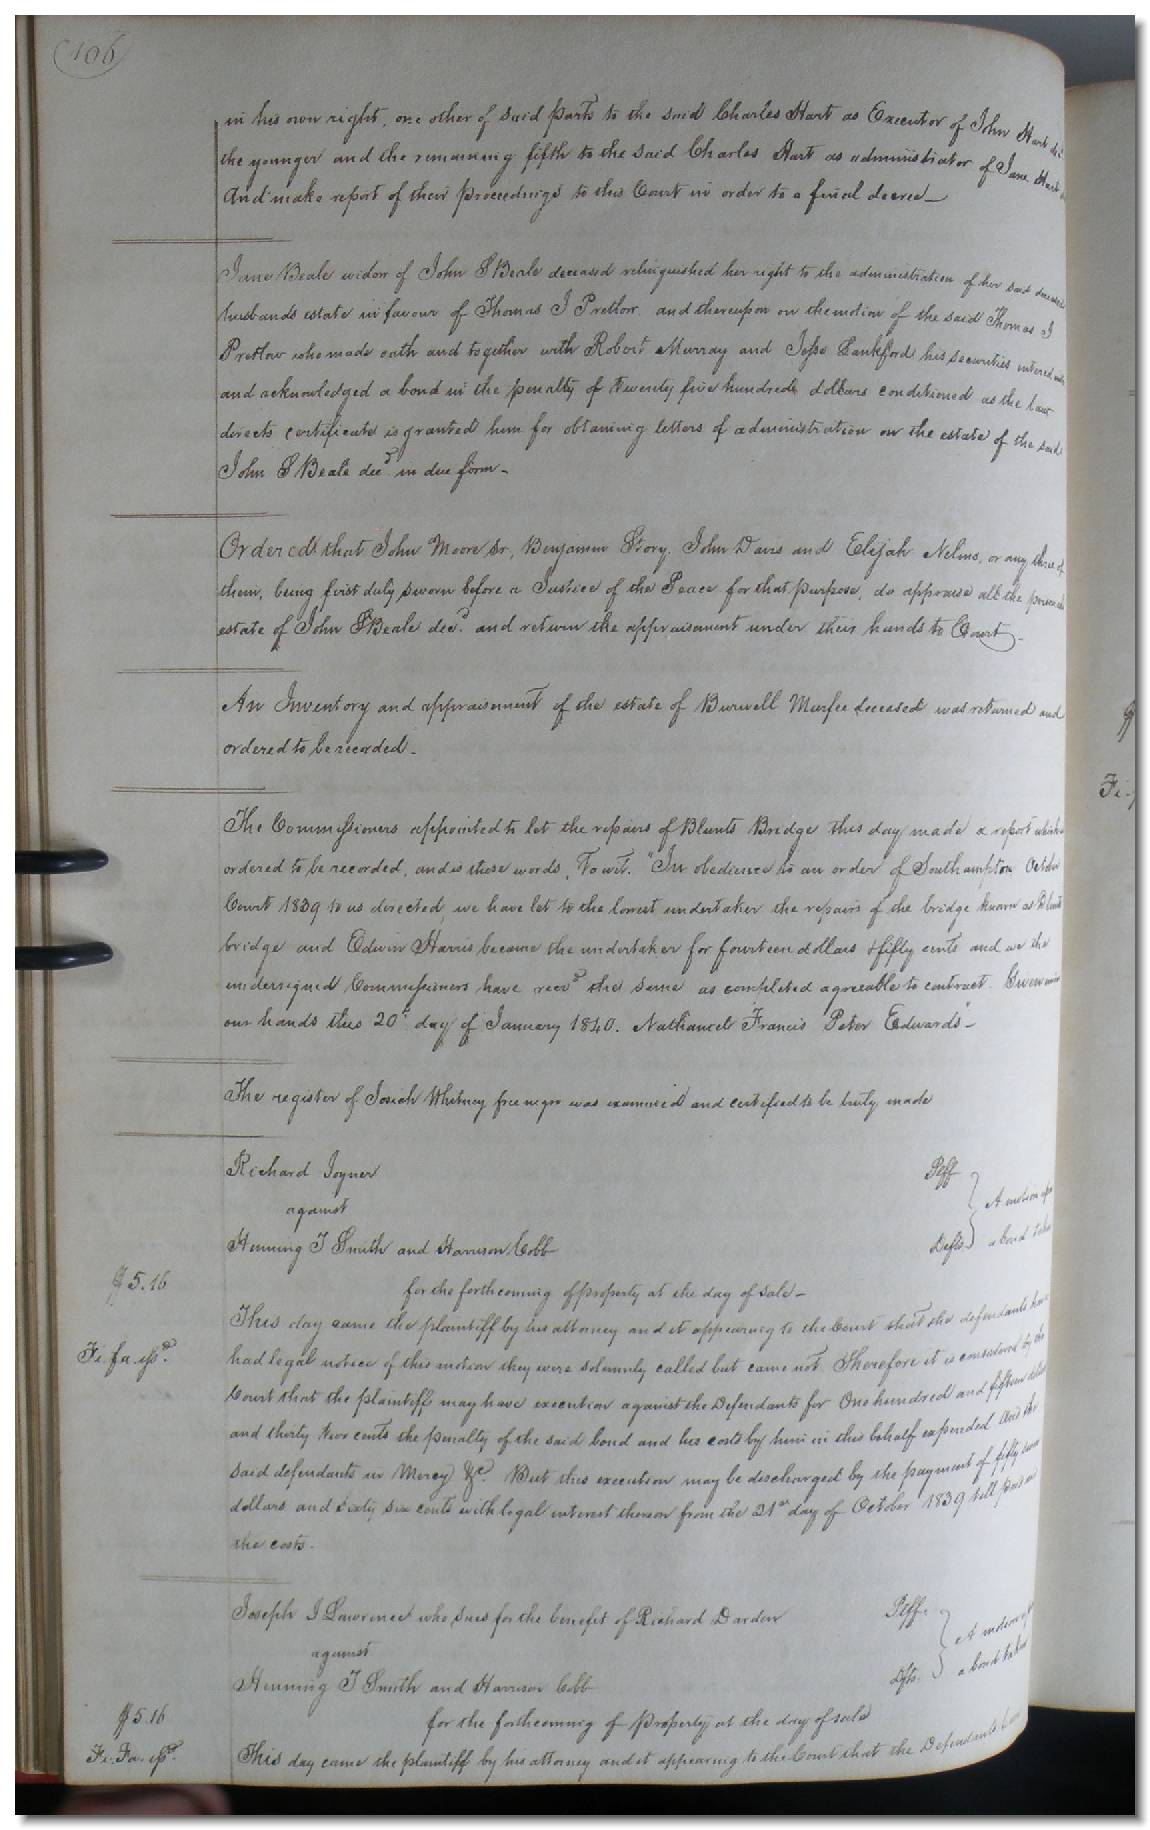 106
in his own right, one other of said parts to the said Charles Hart as Executor of John Hart
the younger and the remaining fifth to the said Charles Hart as administrator of Jane Hart
And make report of their proceedings to this Court in order to a final decree_
Jane Beale widow of John S Beale deceased relinquished her right to the administration of her said deceased
husbands estate in favour of Thomas J Pretlow, and thereupon on the motion of the said Thomas J
Pretlow who made oath and together with Robert Murray and Jesse Lankford his securities entered into
and acknowledged a bond in the penalty of twenty five hundred dollars conditioned as the law
directs certificate is granted him for obtaining letters of administration on the estate of the said
John S Beale decd in due form_
Ordered that John Moore Sr, Benjamin Story, John Davis and Elijah Nelms, or any three of
them, being first duly sworn before a Justice of the Peace for that purpose, do appraise all the personal
estate of John S Beale decd. and return the appraisement under their hands to Court_
An Inventory and appraisement of the estate of Burwell Murfee deceased was returned and
ordered to be recorded_
The Commissioners appointed to let the repairs of Blunts Bridge this day made a report which is
ordered to be recorded, and is these words, To wit. "In obedience to an order of Southampton October
Court 1839 to us directed, we have let to the lowest undertaker the repairs of the bridge known as Blunts
bridge and Edwin Harris became the undertaker for fourteen dollars & fifty cents and we the
undersigned Commissioners have recd the same as completed agreeable to contract. Given under
our hands this 20th day of January 1840. Nathaniel Francis Peter Edwards"_
The register of Josiah Whitney free negro was examined and certified to be truly made
Richard Joyner Plff
against A motion upon
Henning T Smith and Harrison Cobb Defts a bond taken
for the forthcoming of property at the day of sale_
$5.16
This day came the plaintiff by his attorney and it appearing to the Court that the defendants have
Fi. fa. issd.
had legal notice of this motion they were solemnly called but came not. Therefore it is considered by the
Court that the plaintiff may have execution against the Defendants for One hundred and fifteen dollars
and thirty two cents the penalty of the said bond and his costs by him in this behalf expended And the
said defendants in Mercy &c. But this execution may be discharged by the payment of fifty seven
dollars and sixty six cents with legal interest thereon from the 21st day of October 1839 till paid and
the costs.
Joseph J Lawrence who sues for the benefit of Richard Darden Plff.
against A motion upon
Henning T Smith and Harrison Cobb Dfts. a bond taken
$5.16 for the forthcoming of property at the day of sale
Fi. Fa. issd. This day came the plaintiff by his attorney and it appearing to the Court that the Defendants have